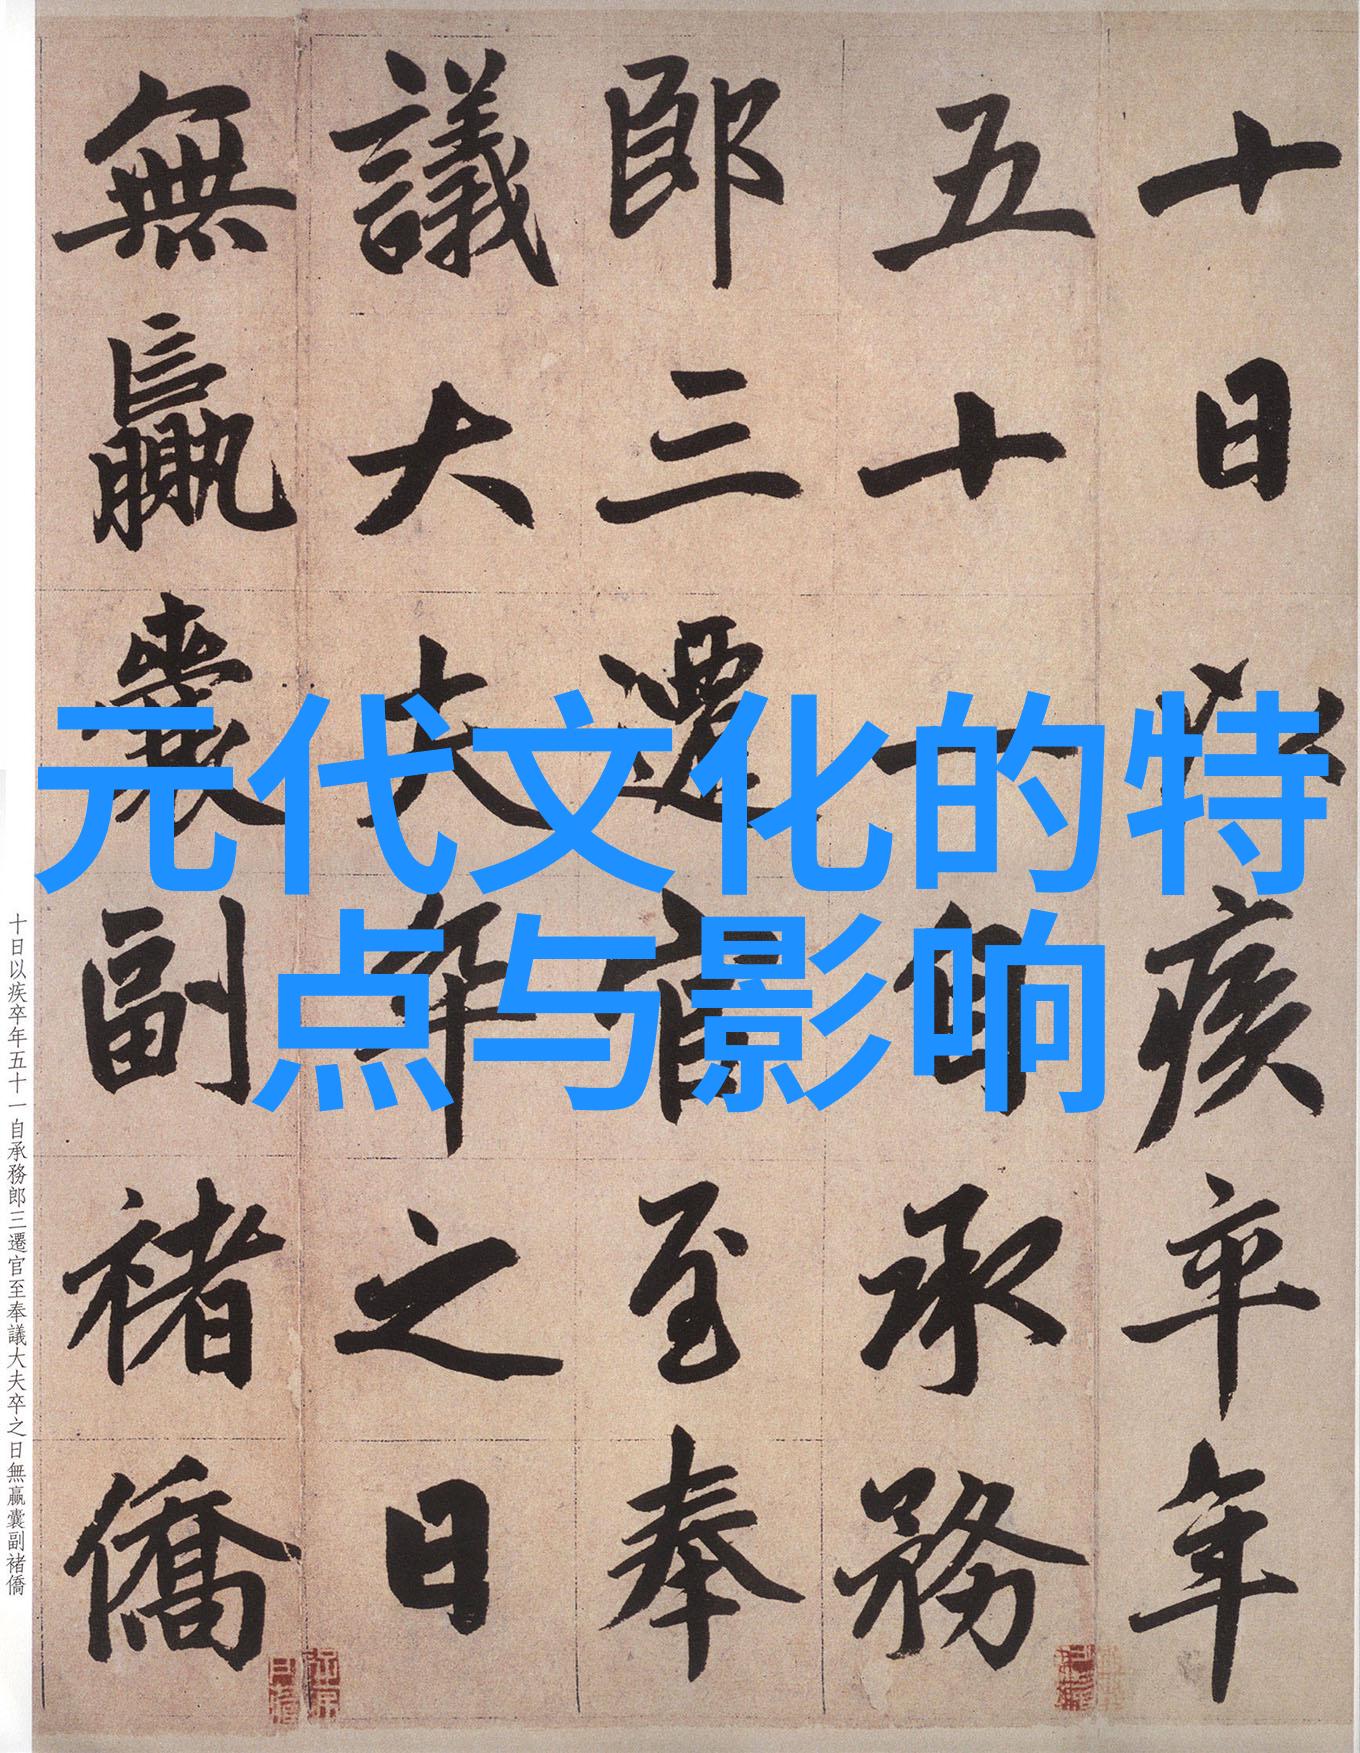 十日以疾卒年
五十一自承務
郎三遷官至奉
議大夫卒之日
無贏囊副褚僑
元代文化的特
点与影响
十日以疾卒年五十一自承務郎三遷官至奉議大夫卒之日無贏囊副褚僑